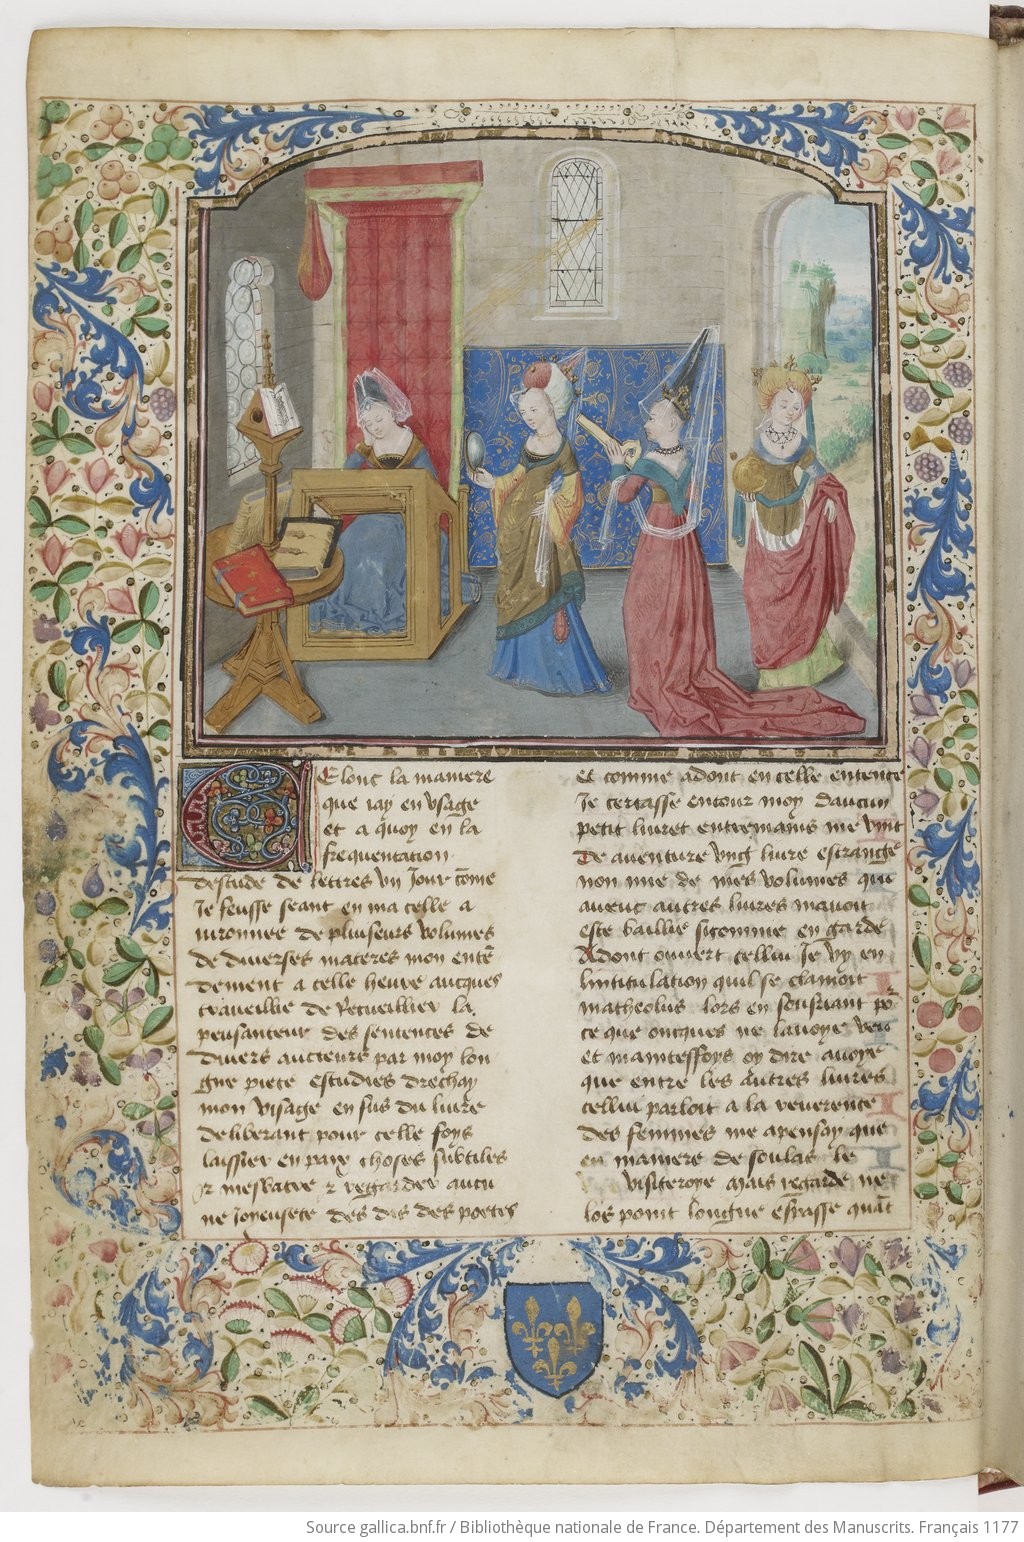 Selonc la maniere
que iay en vsage
et a quoy en la
frequentacion
destude de lettres vn Jour cõme
Je feusse seant en ma celle a
uironnee de pluiseurs volumes
de diuerses materes mon entẽ
dement a celle heure aucques
traueillie de Recueillier la
pensanteur des sentences de
diuers aucteurs par moy lon
gue piece estudies drechay
mon visage en sus du liure
deliberant pour celle foys
laissier en paix choses subtiles
et mesbatre et regarder aucu
ne Joyeusete des dis des poetes
Et comme adont en celle entente
Je cerçasse entour moy daucun
petit liuret entremains me vint
de auenture vng liure estrange
non mie de mes volumes qui
auenc autres liures mauoit
este baillie sicomme en garde
Adont ouuert cellui Je vy en
lintitulation quil se clamoit
matheolus lors en sousriant pour
ce que oncques ne lauoye veu
et maintesfoys oy dire auoye
que entre les autres liures
cellui parloit a la reuerence
des femmes me apensay que
en maniere de soulas le
visiteroye Mais regarde ne
los point longue espasse quãt
Source gallica.bnf.fr / Bibliothèque nationale de France. Département des Manuscrits. Français 1177